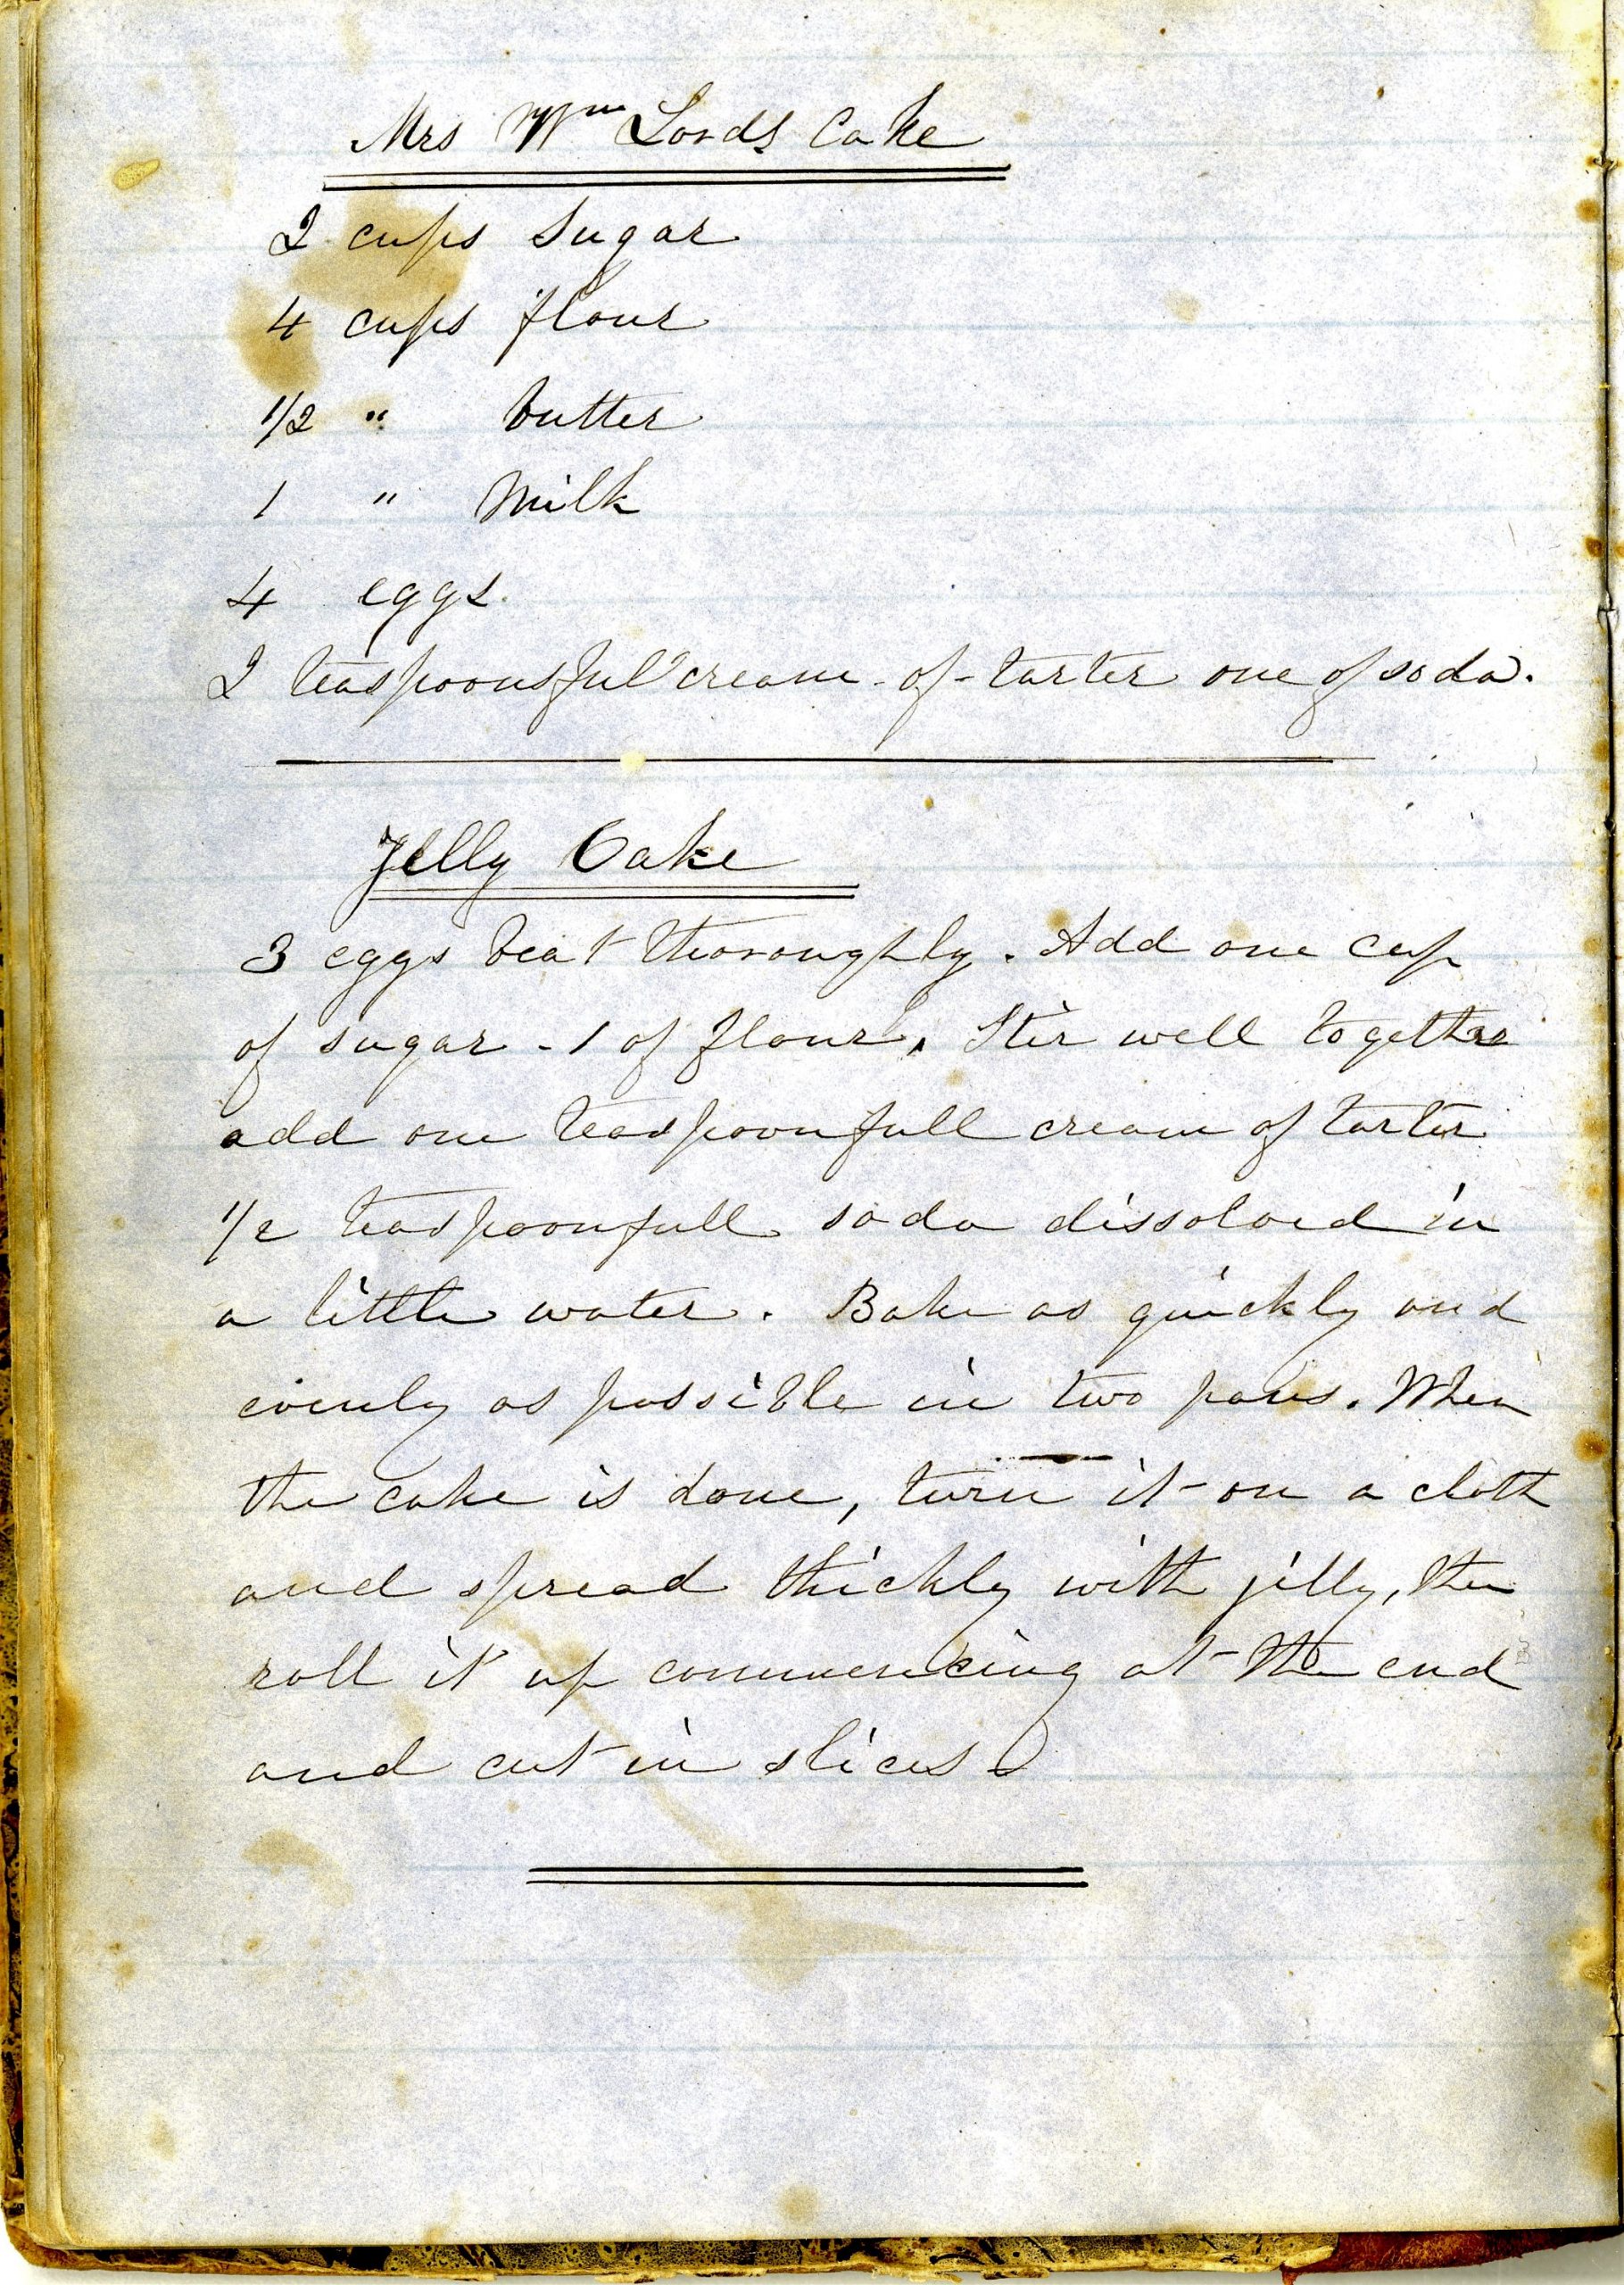 Mrs Wm Lords Cake
2 cups Sugar
4 cups flour
1/2 " butter
1 " Milk
4 eggs.
2 teaspoonsful cream-of-tarter one of soda.
Jelly Cake
3 eggs beat thoroughly. Add one cup
of sugar - 1 of flour. Stir well together
add one teaspoonfull cream of tarter
1/2 teaspoonfull soda dissolved in
a little water. Bake as quickly and
evenly as possible in two pans. When
the cake is done, turn it on a cloth
and spread thickly with jelly, then
roll it up commencing at the end
and cut in slices.